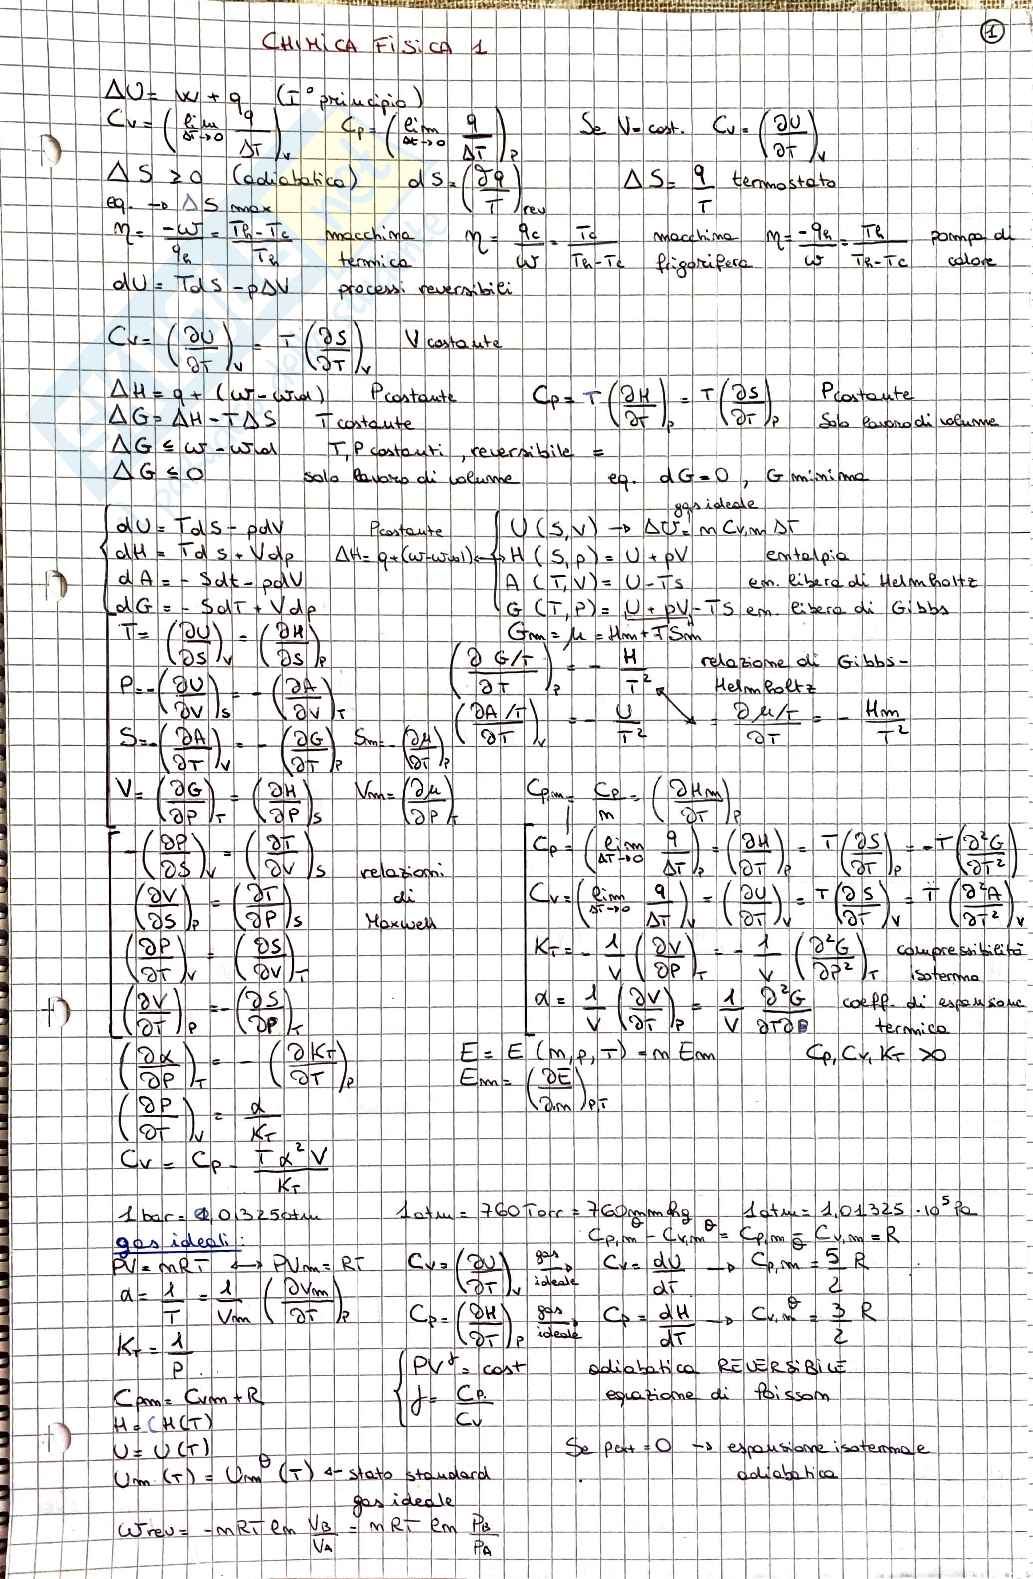 1
CHIMICA FISICA 1
ΔU = w + q (I° principio)
Cv = (lim ΔT→0 q/ΔT)v Cp = (lim Δt→0 q/ΔT)p Se V=cost. Cv = (∂U/∂T)v
ΔS ≥ 0 (adiabatica) dS = (∂q/T)rev ΔS = q/T termostato
eq. → ΔS max
η = -w/qh = Th-Tc/Th macchina termica η = qc/w = Tc/Th-Tc macchina frigorifera η = -qh/w = Th/Th-Tc pompa di calore
dU = TdS - pΔV processi reversibili
Cv = (∂U/∂T)v = T (∂S/∂T)v V costante
ΔH = q + (w-wvol) P costante Cp = T (∂H/∂T)p = T (∂S/∂T)p P costante
ΔG = ΔH - TΔS T costante solo lavoro di volume
ΔG ≤ w - wvol T, P costanti, reversibile =
ΔG ≤ 0 solo lavoro di volume eq. dG = 0, G minima
gas ideale
dU = TdS - pdV P costante U (S,V) → ΔU = m Cv,m ΔT
dH = TdS + Vdp ΔH = q+(w-wvol) ↔ H (S,p) = U + pV entalpia
dA = - Sdt - pdV A (T,V) = U - Ts en. libera di Helmholtz
dG = - SdT + Vdp G (T,P) = U + pV - TS en. libera di Gibbs
T = (∂U/∂S)v = (∂H/∂S)p Gm = μ = Hm + TSm
(∂ G/T/∂T)p = - H/T² relazione di Gibbs-Helmholtz
P = -(∂U/∂V)s = -(∂A/∂V)T
S = -(∂A/∂T)v = -(∂G/∂T)p Sm = -(∂μ/∂T)p (∂A/T/∂T)v = - U/T² = ∂ μ/T/∂T = - Hm/T²
V = (∂G/∂P)T = (∂H/∂P)s Vm = (∂μ/∂P)T Cp,m = Cp/m = (∂Hm/∂T)p
-(∂P/∂S)v = (∂T/∂V)s relazioni di Maxwell Cp = (lim ΔT→0 q/ΔT)p = (∂H/∂T)p = T(∂S/∂T)p = -T(∂²G/∂T²)
(∂V/∂S)p = (∂T/∂P)s Cv = (lim ΔT→0 q/ΔT)v = (∂U/∂T)v = T(∂S/∂T)v = T (∂²A/∂T²)v
(∂P/∂T)v = (∂S/∂V)T KT = - 1/V (∂V/∂P)T = - 1/V (∂²G/∂P²)T compressibilità isoterma
(∂V/∂T)p = -(∂S/∂P)T α = 1/V (∂V/∂T)p = 1/V ∂²G/∂T∂P coeff. di espansione termica
(∂α/∂P)T = - (∂KT/∂T)p E = E (m,p,T) = m Em Cp, Cv, KT > 0
Em = (∂E/∂m)p,T
(∂P/∂T)v = α/KT
Cv = Cp - Tα²V/KT
1 bar = 1,01325 atm 1 atm = 760 Torr = 760 mmHg 1 atm = 1,01325 · 10⁵ Pa
gas ideali: Cp,m^θ - Cv,m^θ = Cp,m - Cv,m = R
PV = mRT ↔ PVm = RT Cv = (∂U/∂T)v gas ideale → Cv = dU/dT → Cp,m = 5/2 R
α = 1/T = 1/Vm (∂Vm/∂T)p Cp = (∂H/∂T)p gas ideale → Cp = dH/dT → Cv,m^θ = 3/2 R
KT = 1/P
PV^γ = cost adiabatica REVERSIBILE
Cpm = Cvm + R γ = Cp/Cv equazione di Poisson
H = H(T)
U = U(T) Se pext = 0 → espansione isoterma e adiabatica
Um (T) = Um^θ (T) ← stato standard gas ideale
wrev = -mRT lm VB/VA = mRT lm PB/PA